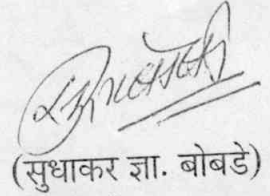 (सुधाकर ज्ञा. बोबडे)